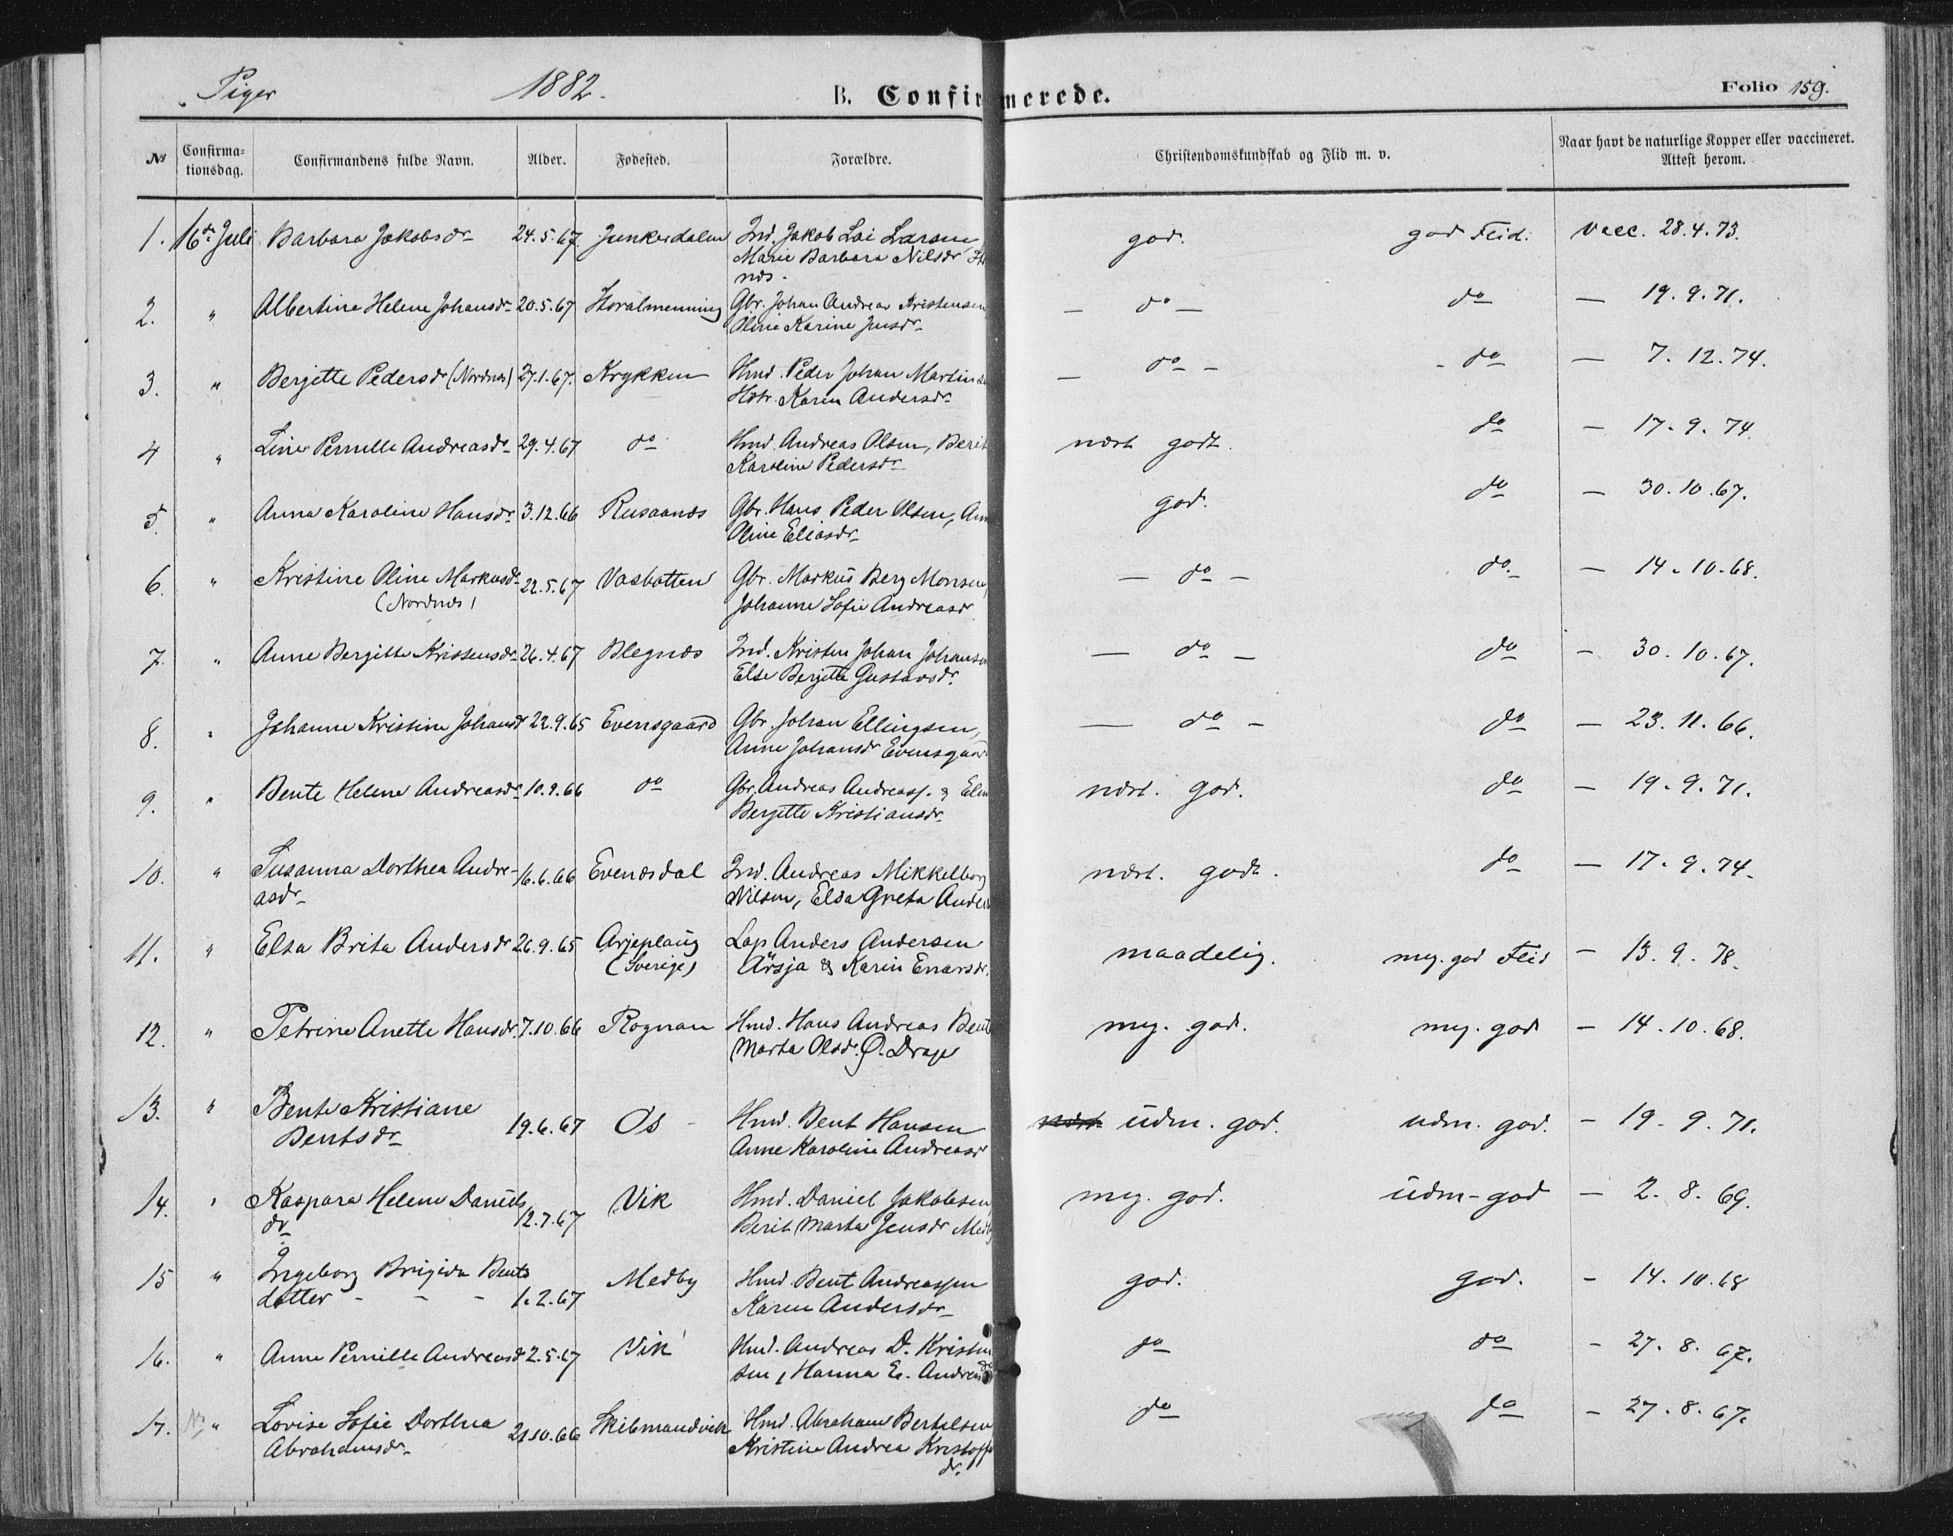 Piger 1882. B. Confirmerede. Folio 159.
№ Confirma-tionsdag. Confirmandens fulde Navn. Alder. Fødested. Forældre. Christendomskundskab og Flid m. v. Naar havt de naturlige Kopper eller vaccineret. Attest herom.
1. 16de Juli Barbara Jakobsdr 24.5.67 Junkerdalen Ind. Jakob Loi Larsen god. god Flid. vacc. 28.4.73.
Marie Barbara Nilsdr
næs.
2. " Albertine Helene Johansdr 20.5.67 Storalmenning Gbr. Johan Andreas Kristensen — do — do — 19.9.71.
Oline Karine Jensdr
3. " Berjette Pedersdr (Nordnæs) 27.1.67. Krykken Hmd. Peder Johan Martin — do — - do — 7.12.74.
Hstr. Karen Andersdr
4 " Line Pernille Andreasdr 29.4.67 do Hmd. Andreas Olsen, Berit næst godt. do — 17.9.74.
Karoline Pedersdr
5. " Anna Karoline Hansdr 3.12.66 Rusaanæs Gbr. Hans Peder Olsen, god. do — 30.10.67.
Oline Eliasdr
6. " Kristine Oline Markusdr 22.5.67 Vasbotten Gbr. Markus Berg Monsen, — do — do — 14.10.68.
(Nordnæs) Johanne Sofie Andreasdr
7. " Anne Bergitte Kristensdr 26.4.67 Blegnæs Ind. Kristen Johan Johansen — do — do — 30.10.67.
Else Berjette Gustavsdr.
8. " Johanne Kristine Johansdr 22.9.65 Evensgaard Gbr. Johan Ellingsen, — do — do — 23.11.66.
Anne Johansdr Evensgaar
9. " Bente Helene Andreasdr 10.9.66 do Gbr. Andreas Andreass. & Elen næst. god. do — 19.9.71.
Berjette Kristiansdr
10. " Susanna Dorthea Andre- 16.6.66 Evenæsdal Ind. Andreas Mikkelborg næst. godt. do — 17.9.74.
asdr Nilsen, Elsa Greta Anders
11. " Elsa Brita Andersdr 26.9.65 Arjeplaug Lap Anders Andersen maadelig. meg. god Flid — 13.9.78.
(Sverige) Arsja & Karin Enarsdr.
12. " Petrine Anette Hansdr. 7.10.66 Rognan Hmd. Hans Andreas Bent meg. god. meg. god — 14.10.68.
Marta Olsdr. Ø. Drage
13. " Bente Kristiane 19.6.67 Os Hmd. Bent Hansen næst udm. god. udm. god. — 19.9.71.
Bentsdr Anne Karoline Andreasdr
14. " Kaspara Helene Daniels 12.7.67 Vik Hmd. Daniel Jakobsen, meg. god. udm. god — 2.8.69.
dr Berit Marta Jensdr Medby
15 " Ingeborg Brigida Bents Medby Hmd. Bent Andreassen god. god. — 14.10.68
datter - - - 1.2.67 Karen Andersdr
16. " Anne Pernille Andreasdr 2.5.67 Vik Hmd. Andreas D. Kristen do do — 27.8.67.
sen, Hanna E. Andreasdr
17. " Lovise Sofie Dorthea 21.10.66 Skibmandvik Hmd. Abraham Bertelsen do do — 27.8.67.
Abrahamsdr Kristine Andrea Kristoffer
dr.